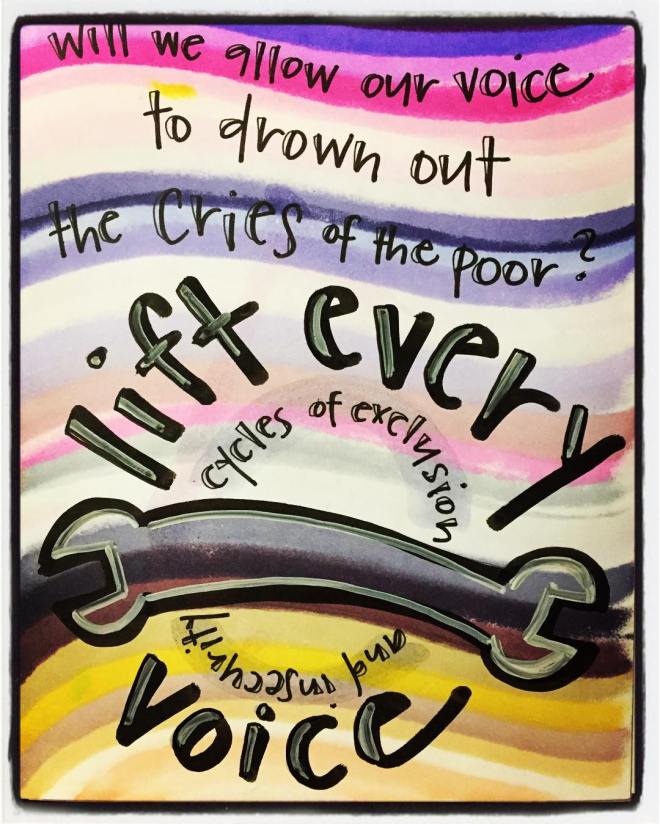 Will we allow our voice
to drown out
the cries of the poor?
lift every
cycles of exclusion
and insecurity
voice